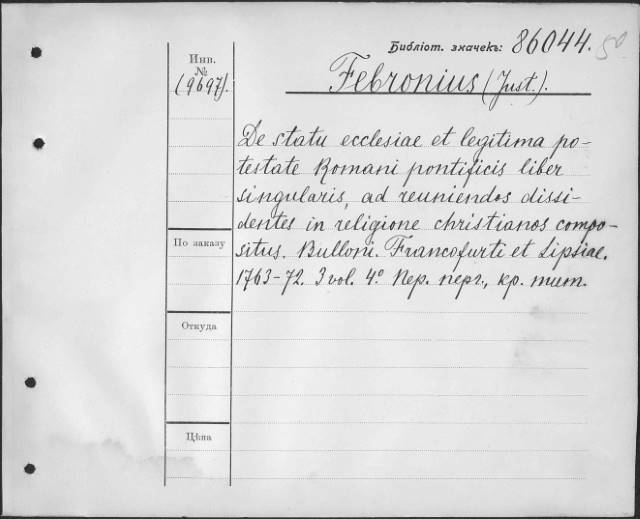 Библіот. значекъ: 86044. 50
Инв.
№
(9697).
Febronius (Just.).
De statu ecclesiae et legitima po-
testate Romani pontificis liber
singularis, ad reuniendos dissi-
dentes in religione christianos compo-
situs. Bulloni. Francofurti et Lipsiae.
1763-72. 3 vol. 4º Пер. перг., кр. тит.
По заказу
Откуда
Цѣна